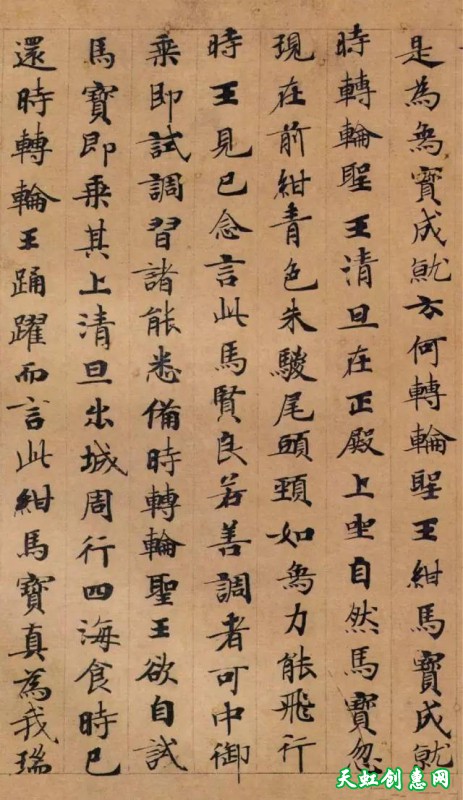 是為象寶成就云何轉輪聖王紺馬寶成就
時轉輪聖王清旦在正殿上坐自然馬寶忽
現在前紺青色朱騣尾頭頸如象力能飛行
時王見已念言此馬賢良若善調者可中御
乘即試調習諸能悉備時轉輪聖王欲自試
馬寶即乘其上清旦出城周行四海食時已
還時轉輪王踊躍而言此紺馬寶真為我瑞
天虹创惠网